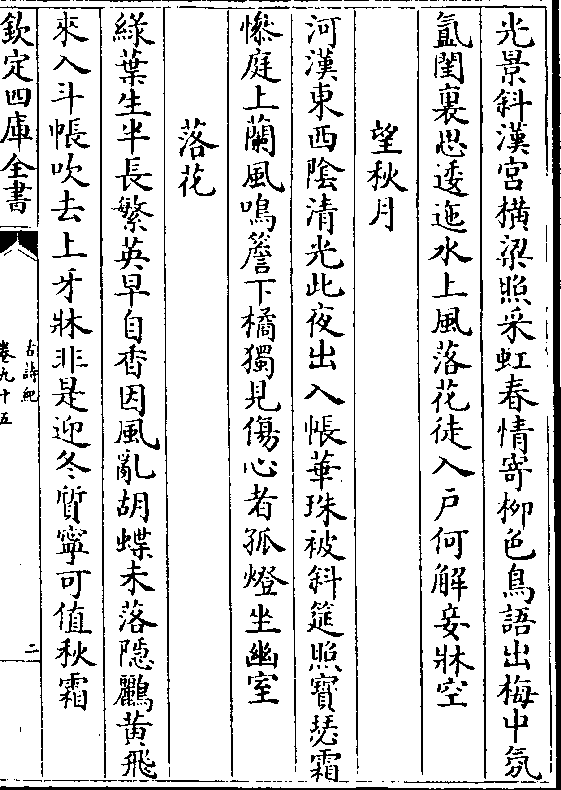 光景斜漢宮橫梁照采虹春情寄柳色鳥語出梅中氛
氳閨裏思逶迤水上風落花徒入戶何解妾牀空
望秋月
河漢東西陰清光此夜出入帳華珠被斜筵照寶瑟霜
慘庭上蘭風鳴簷下橘獨見傷心者孤燈坐幽室
落花
綠葉生半長繁英早自香因風亂胡蝶未落隠鸝黃飛
來入斗帳吹去上牙牀非是迎冬質寧可值秋霜
欽定四庫全書
古詩紀
卷九十五
二